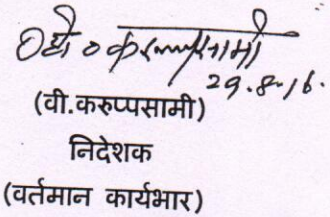 वी० करुप्पसामी
29.8.16.
(वी.करुप्पसामी)
निदेशक
(वर्तमान कार्यभार)